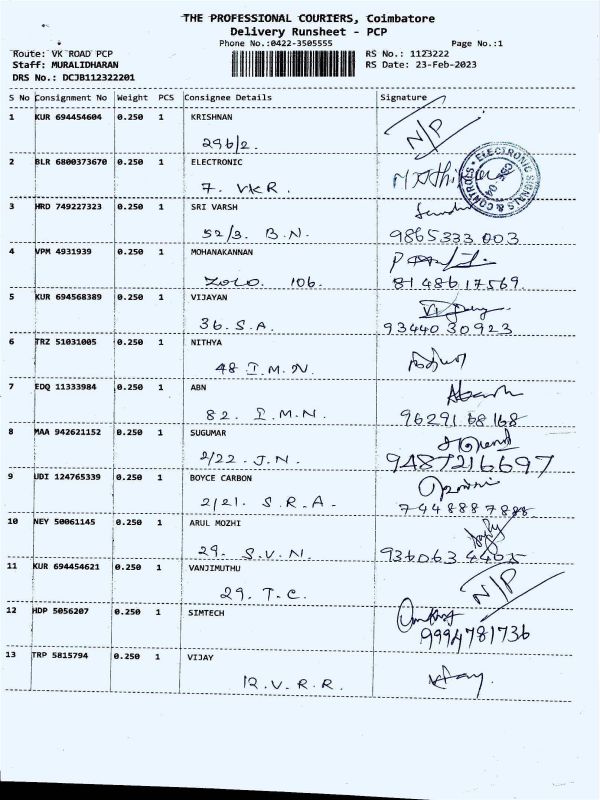 THE PROFESSIONAL COURIERS, Coimbatore
Delivery Runsheet - PCP
Phone No.:0422-3505555 Page No.:1
Route: VK ROAD PCP RS No.: 1123222
Staff: MURALIDHARAN RS Date: 23-Feb-2023
DRS No.: DCJB112322201
S No Consignment No Weight PCS Consignee Details Signature
1 KUR 694454604 0.250 1 KRISHNAN
296/2. N/P
2 BLR 6800373670 0.250 1 ELECTRONIC
7. VKR. ELECTRONIC SIGNALS & CONTROLS
3 HRD 749227323 0.250 1 SRI VARSH
52/3. B.N. 9865333003
4 VPM 4931939 0.250 1 MOHANAKANNAN
ZOLO. 106. 8148617569.
5 KUR 694568389 0.250 1 VIJAYAN
36. S.A. 9344030923
6 TRZ 51031005 0.250 1 NITHYA
48 I.M.N.
7 EDQ 11333984 0.250 1 ABN
82. I.M.N. 9629168168
8 MAA 942621152 0.250 1 SUGUMAR
2/22. J.N. 9487216697
9 UDI 124765339 0.250 1 BOYCE CARBON
2/21. S.R.A. 7448887888
10 NEY 50061145 0.250 1 ARUL MOZHI
29. S.V.N. 9360634405
11 KUR 694454621 0.250 1 VANJIMUTHU
29. T.C. N/P
12 HDP 5056207 0.250 1 SIMTECH
9994781736
13 TRP 5815794 0.250 1 VIJAY
12.V.R.R.